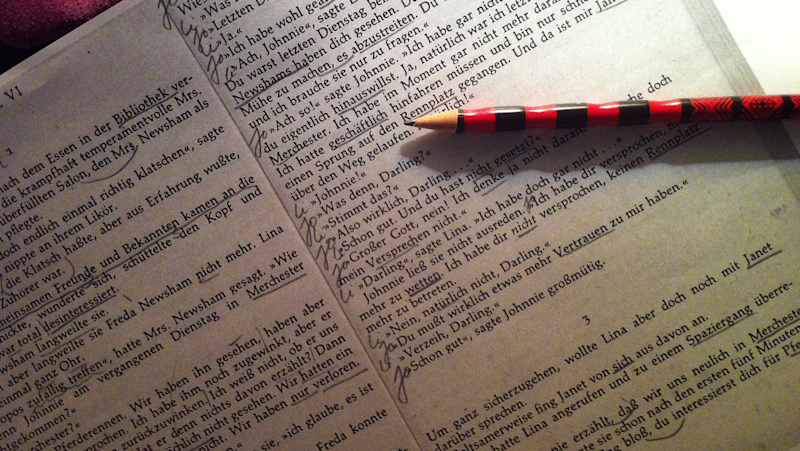 - VI
1
Nach dem Essen in der Bibliothek ver-
die krampfhaft temperamentvolle Mrs.
überfüllten Salon, den Mrs. Newsham als
pflegte.
doch endlich einmal richtig klatschen«, sagte
nippte an ihrem Likör.
die Klatsch haßte, aber aus Erfahrung wußte,
Zuhörer war.
Freunde und Bekannten kamen an die
wunderte sich, schüttelte den Kopf und
war total desinteressiert.
langweilte sie.
aber langweilte sie Freda Newsham nicht mehr. Lina
einmal ganz Ohr.
zufällig treffen«, hatte Mrs. Newsham gesagt. »Wie
Johnnie am vergangenen Dienstag in Merchester
Pferderennen. Wir haben ihn gesehen, haben aber
Ich habe ihm noch zugewinkt, aber er
zurückzuwinken. Ich weiß nicht, ob er uns
er denn nichts davon erzählt? Dann
nicht gesehen. Wir hatten ein
nicht. Wir haben nur verloren.
sie, »ich glaube, es ist
Freda konnte
»Was
»Letzten
»Ja.«
»Ich habe wohl
»Ach, Johnnie«, sagte
Du warst letzten Dienstag
Newshams haben dich gesehen. Du
Mühe zu machen, es abzustreiten. Du
und ich brauche sie nur zu fragen.«
»Ach so!« sagte Johnnie. »Ich habe gar nicht
du eigentlich hinauswillst. Ja, natürlich war ich letzten
Merchester. Ich habe im Moment gar nicht mehr daran
Ich hatte geschäftlich hinfahren müssen und bin nur schnell
einen Sprung auf den Rennplatz gegangen. Und da ist mir Janet
über den Weg gelaufen.
»Johnnie!«
»Was denn, Darling?«
»Stimmt das?«
»Also wirklich, Darling . . .«
»Schon gut. Und du hast nicht gesetzt?«
»Großer Gott, nein! Ich denke ja nicht daran. doch
mein Versprechen nicht.«
»Darling«, sagte Lina. »Ich habe doch gar nicht . . .«
Johnnie ließ sie nicht ausreden. »Ich habe dir versprochen,
mehr zu wetten. Ich habe dir nicht versprochen, keinen Rennplatz
mehr zu betreten.
»Nein, natürlich nicht, Darling.«
»Du mußt wirklich etwas mehr Vertrauen zu mir haben.«
»Verzeih, Darling.«
»Schon gut«, sagte Johnnie großmütig.
3
Um ganz sicherzugehen, wollte Lina aber doch noch mit Janet
darüber sprechen.
fing Janet von sich aus davon an.
hatte Lina angerufen und zu einem Spaziergang überre-
erzähl, daß wir uns neulich in Merchester
sie schon nach den ersten fünf Minuten
bloß, du interessierst dich für